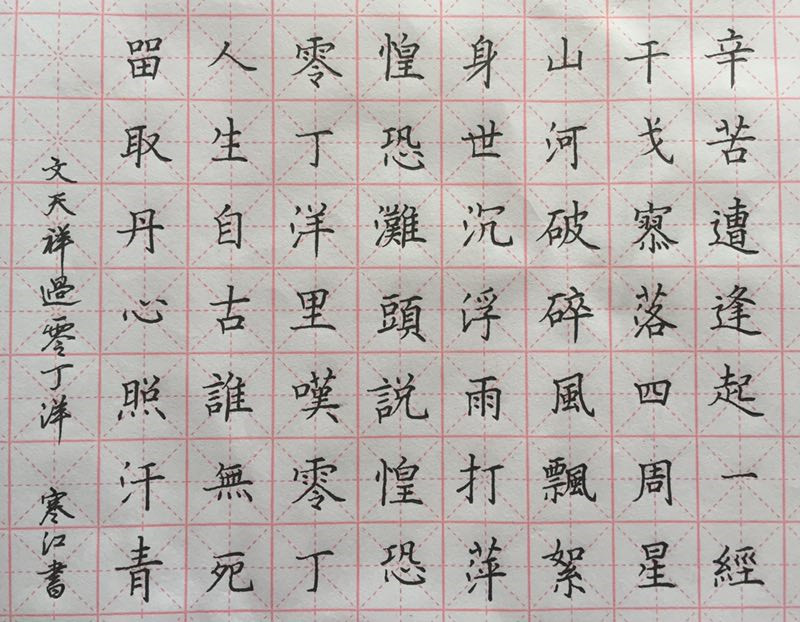 辛苦遭逢起一經
干戈寥落四周星
山河破碎風飄絮
身世沉浮雨打萍
惶恐灘頭說惶恐
零丁洋里嘆零丁
人生自古誰無死
留取丹心照汗青
文天祥過零丁洋 寒江書